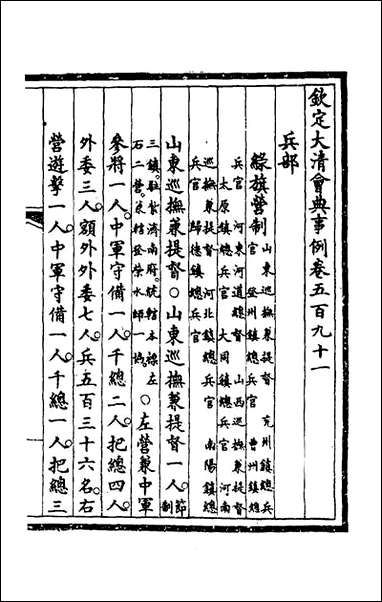 欽定大清會典事例卷五百九十一
兵部
綠旗營制
山東巡撫兼提督 兗州鎮總兵
官 登州鎮總兵官 曹州鎮總
兵官 河東河道總督 山西巡撫兼提督
太原鎮總兵官 大同鎮總兵官 河南
巡撫兼提督 河北鎮總兵官 南陽鎮總
兵官 歸德鎮總兵官
山東巡撫兼提督○山東巡撫兼提督一人節制
三鎮駐劄濟南府統轄本標左
右二營兼轄登榮水師一協
○左營兼中軍
參將一人中軍守備一人千總二人把總四人
外委三人額外外委七人兵五百三十六名右
營遊擊一人中軍守備一人千總一人把總三